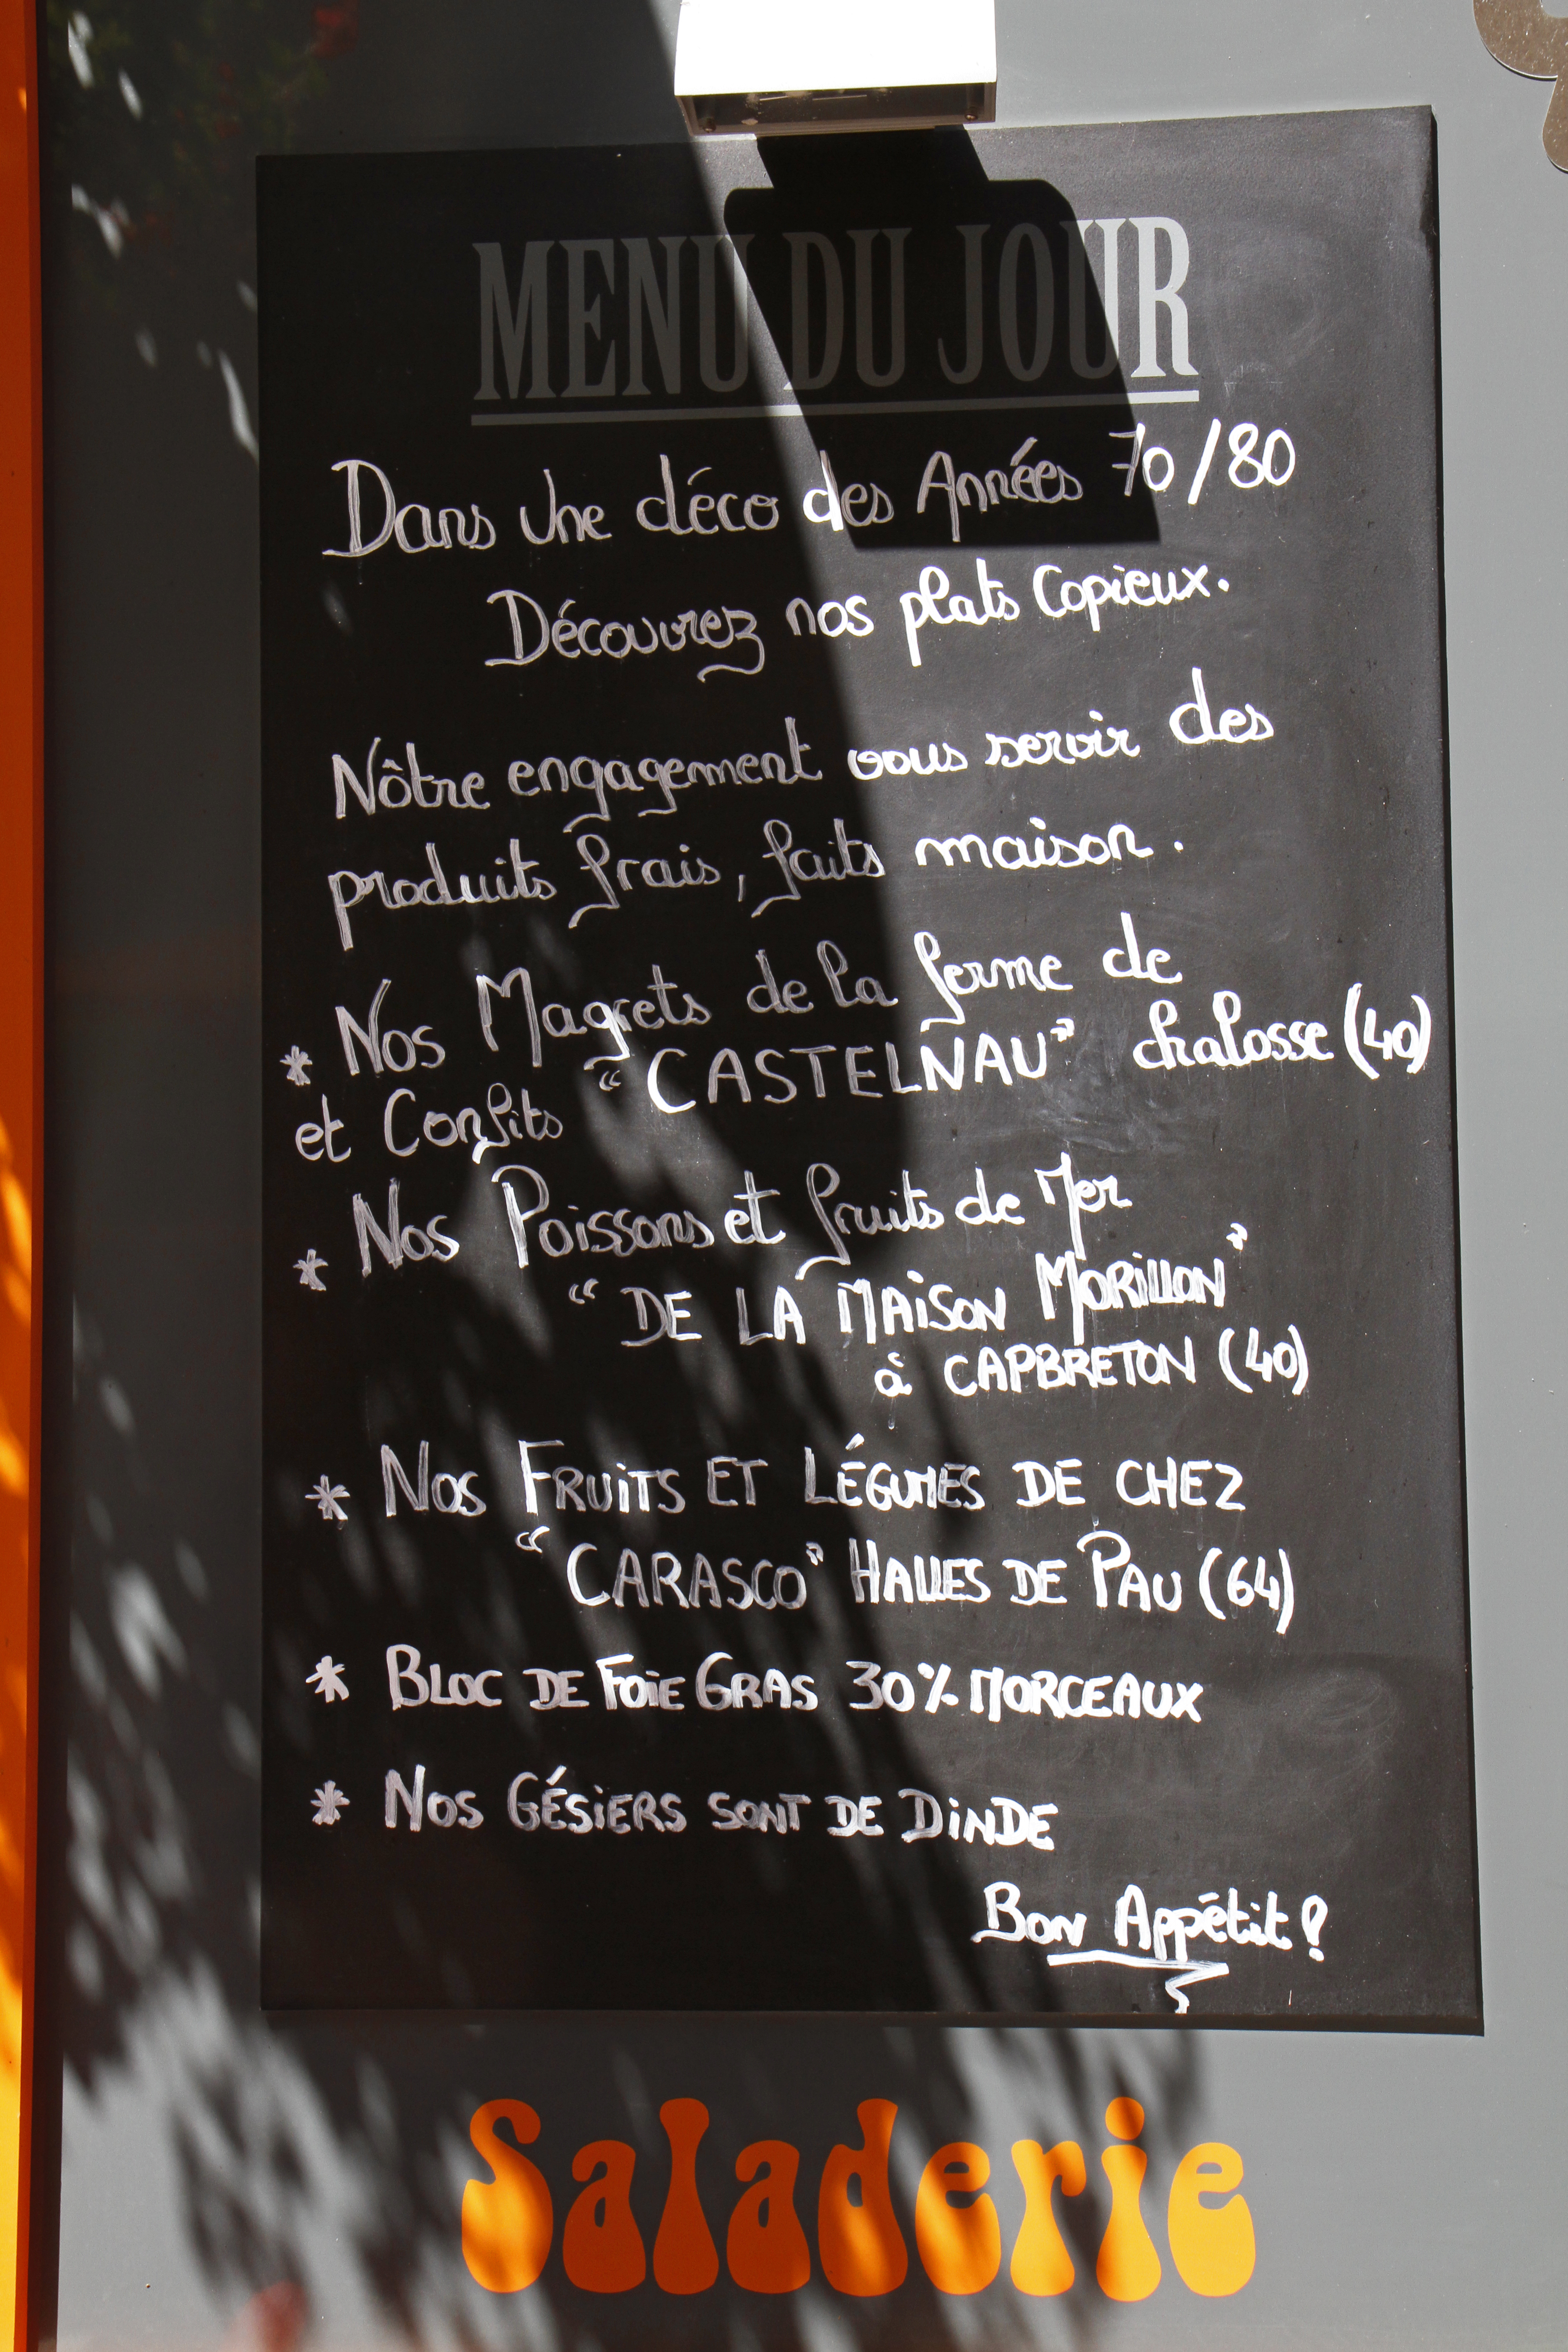 MENU DU JOUR
Dans une déco des Années 70/80
Découvrez nos plats Copieux.
Nôtre engagement vous servir des
produits frais, faits maison.
* Nos Magrets de la ferme de
et Confits "CASTELNAU" Chalosse (40)
* Nos Poissons et fruits de Mer
"DE LA MAiSON MORiLLON"
à CAPBRETON (40)
* NOS FRUiTS ET LÉGUMES DE CHEZ
"CARASCO" HALLES DE PAU (64)
* BLOC DE FOiE GRAS 30% MORCEAUX
* NOS GÉSiERS SONT DE DiNDE
Bon Appétit !
Saladerie